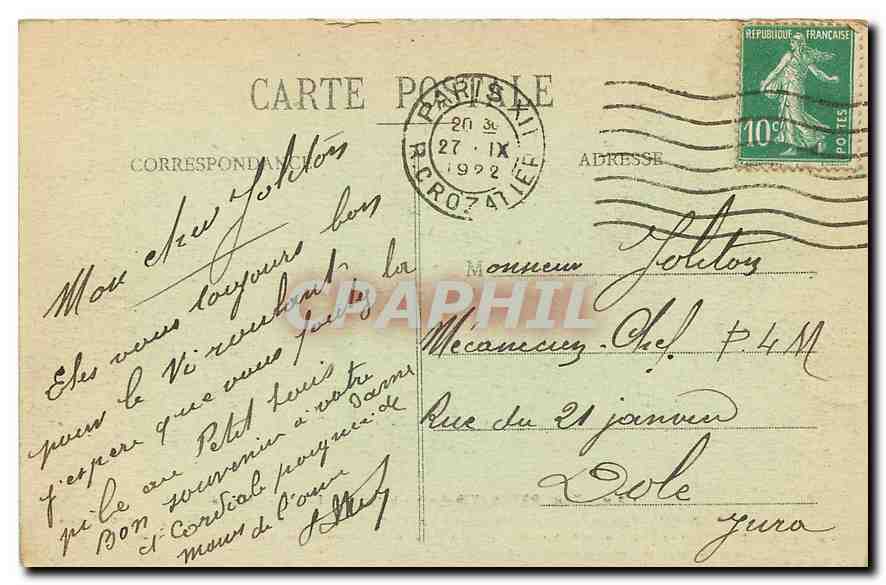 CARTE POSTALE
CORRESPONDANCE
ADRESSE
RÉPUBLIQUE FRANÇAISE
10c
POSTES
PARIS XII
20 30
27 · IX
1922
R. CROZATIER
CPAPHIL
Mon cher Joliton
Etes vous toujours bon
pour le Vi roulant, la
j'espere que vous foutez la
pile au Petit Louis
Bon souvenir à votre Dame
et Cordiale poignée de
mains de l'ami
Monsieur Joliton
Mécanicien-Chef P.4M
Rue du 21 janvier
Dole
Jura